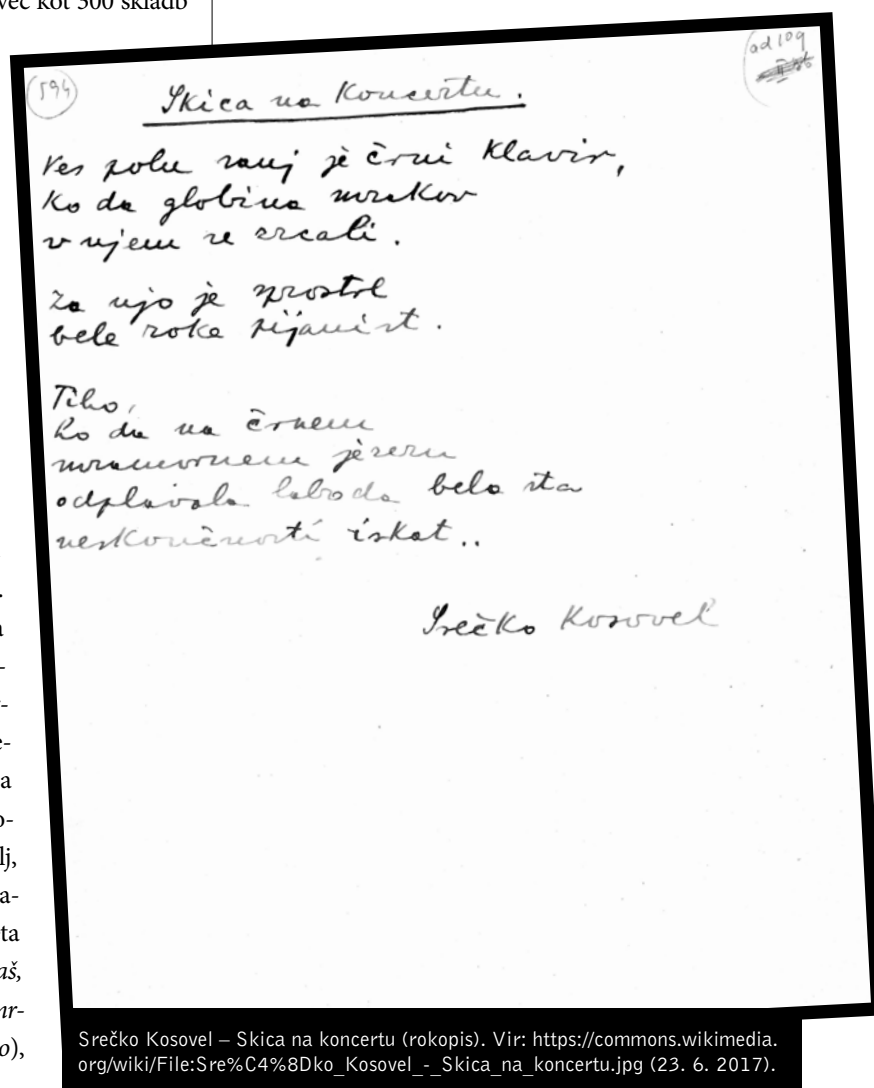 več kot 300 skladb
594
od 109
Skica na koncertu.
Ves poln sanj je črni klavir,
ko da globina mrakov
v njem se zrcali.
Za njo je prostrl
bele roke pijanist.
Tiho,
ko da na črnem
mramornem jezeru
odplavala laboda bela sta
neskončnosti iskat..
Srečko Kosovel
.
a
-
-
e-
a
o-
lj,
a-
ta
aš,
mr-
o),
Srečko Kosovel – Skica na koncertu (rokopis). Vir: https://commons.wikimedia.
org/wiki/File:Sre%C4%8Dko_Kosovel_-_Skica_na_koncertu.jpg (23. 6. 2017).